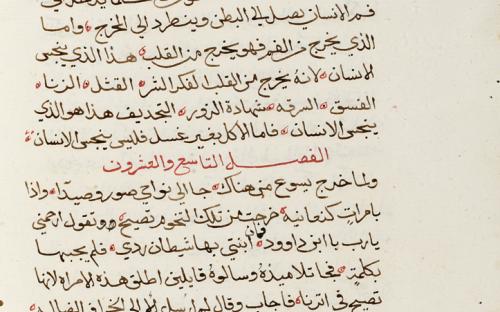 فم الانسان يصل الى البطن وينطرد الى المخرج واما
الذي يخرج من الفم فهو يخرج من القلب هذا الذي ينجس
الانسان لانه يخرج من القلب الفكر الشر القتل الزنا
الفسق السرقه شهادة الزور التجديف هذا هو الذي
ينجس الانسان فاما الاكل بغير غسل فليس ينجس الانسان
الفصل التاسع والعشرون
ولما خرج يسوع من هناك جا الى نواحي صور وصيدا واذا
بامراة كنعانية خرجت من تلك التخوم تصيح وتقول ارحمني
يارب يا ابن داوود فان ابنتي بها شيطان ردي فلم يجيبها
بكلمة فجا تلاميذه وسالوه قايلين اطلق هذه الامراه لانها
تصيح في اثرنا فاجاب وقال لم ارسل الا الى الخراف الضاله